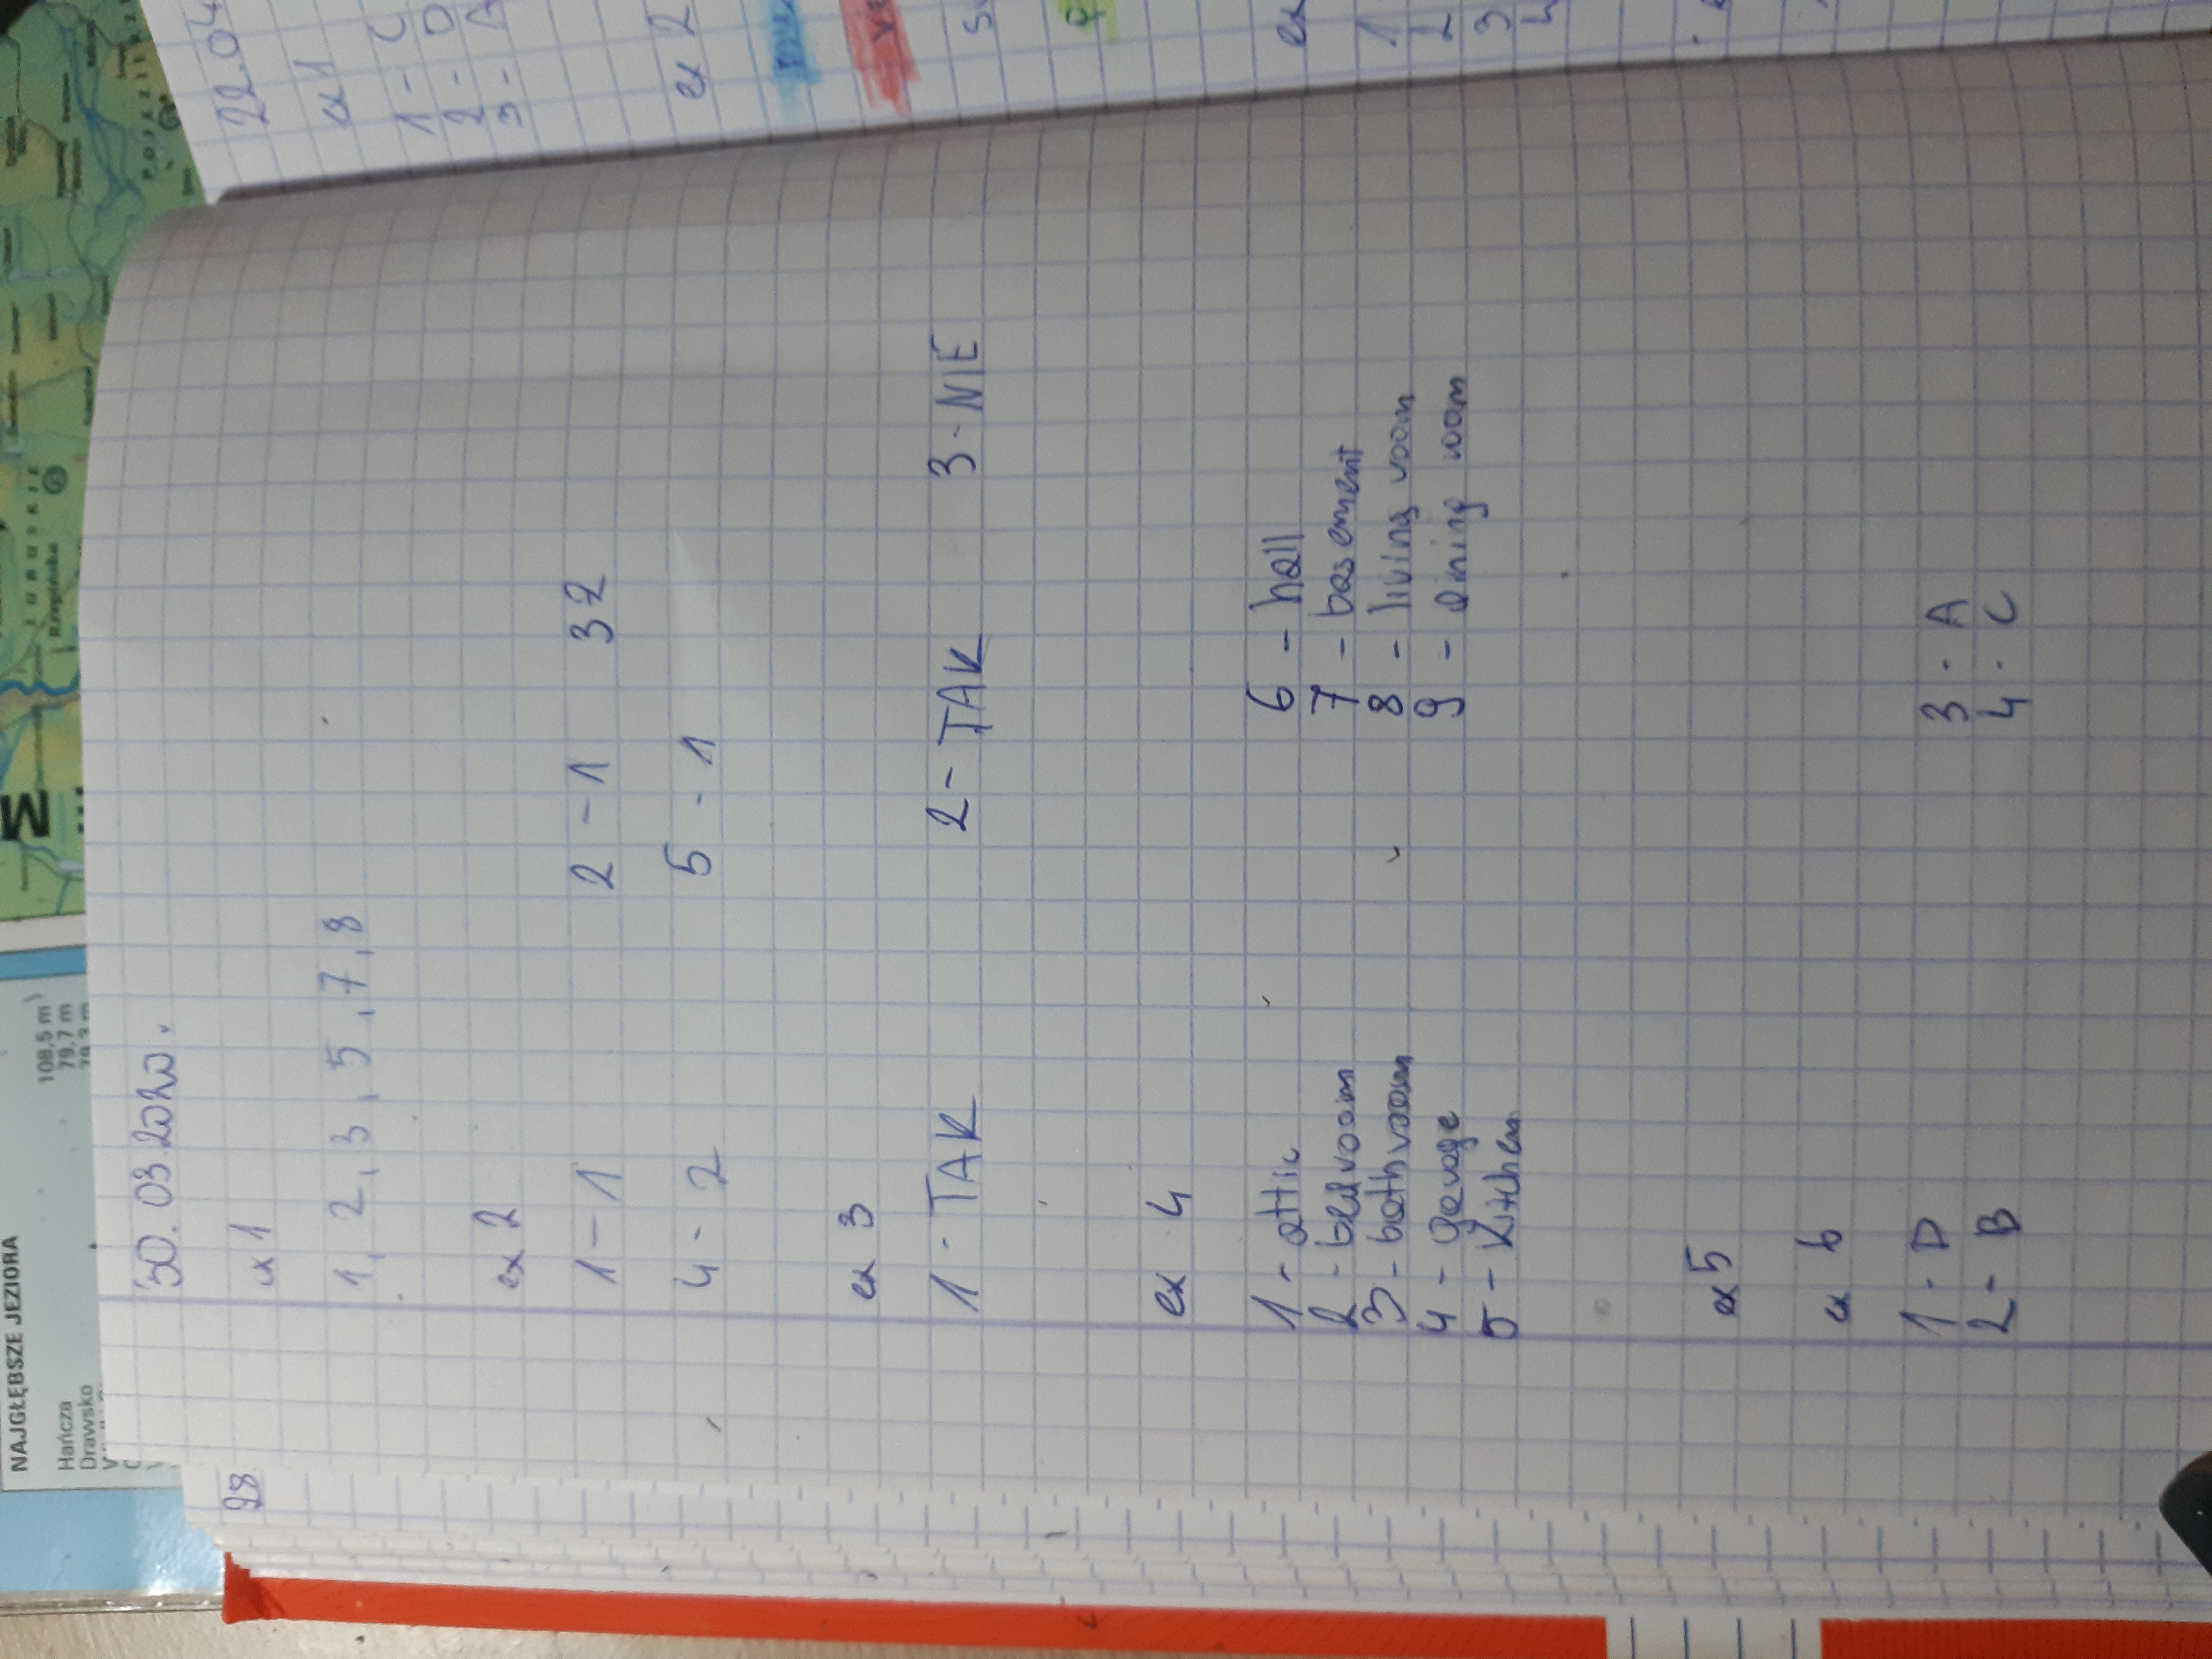 30.03.2020.
ex 1
1, 2, 3, 5, 7, 8
ex 2
1 - 1 2 - 1 3 2
4 - 2 5 - 1
ex 3
1 - TAK 2 - TAK 3 - NIE
ex 4
1 - attic 6 - hall
2 - bedroom 7 - basement
3 - bathroom 8 - living room
4 - garage 9 - dining room
5 - kitchen
ex 5
ex 6
1 - D 3 - A
2 - B 4 - C
22.04
ex 1
1 - C
2 - D
3 - A
ex 2
ex
1
2
3
4
28
NAJGŁĘBSZE JEZIORA
Hańcza 108,5 m)
Drawsko 79,7 m
M